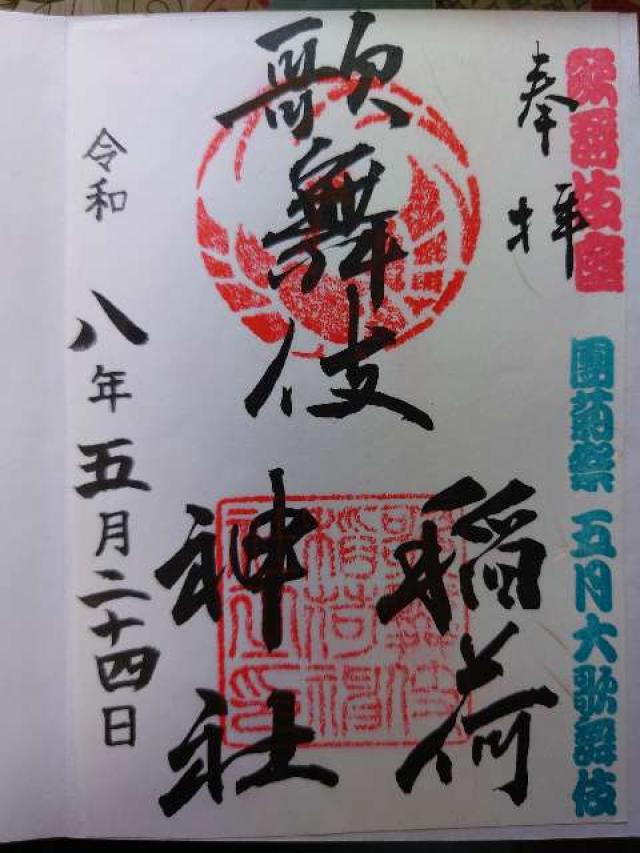 歌舞伎座
團菊祭 五月大歌舞伎
奉拝
歌舞伎
稲荷
神社
令和八年五月二十四日